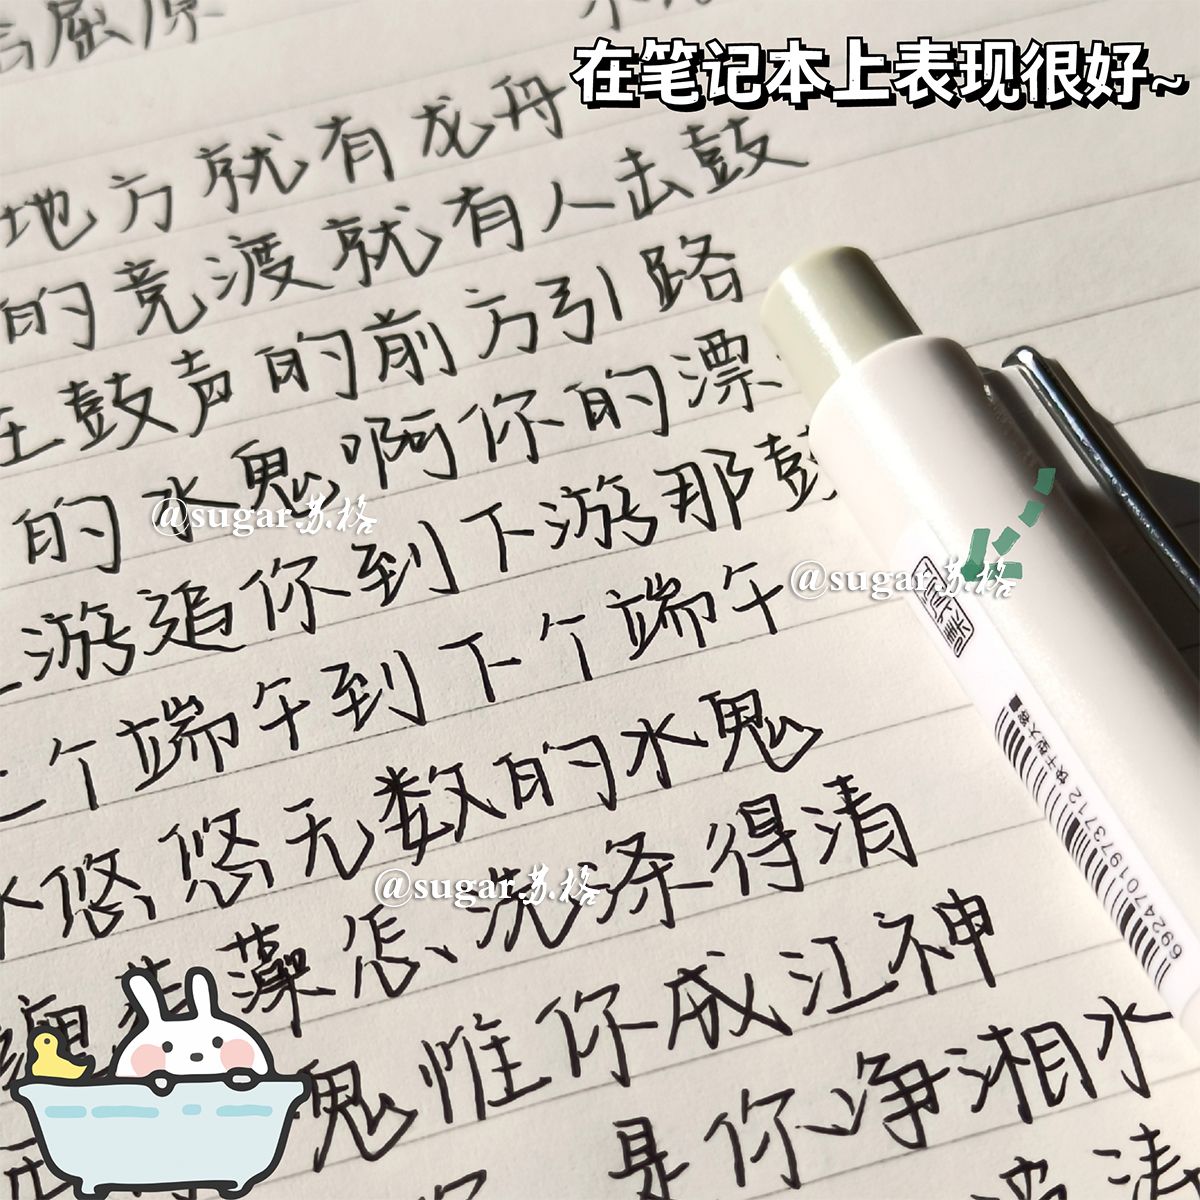 在笔记本上表现很好~
屈原
地方就有龙舟
的竞渡就有人击鼓
在鼓声的前方引路
的水鬼啊你的漂
@sugar苏格
游追你到下游那鼓
@sugar苏格
个端午到下个端午
水悠悠无数的水鬼
@sugar苏格
藻怎洗涤得清
鬼惟你成江神
是你净湘水
快干型大容
6924701973712